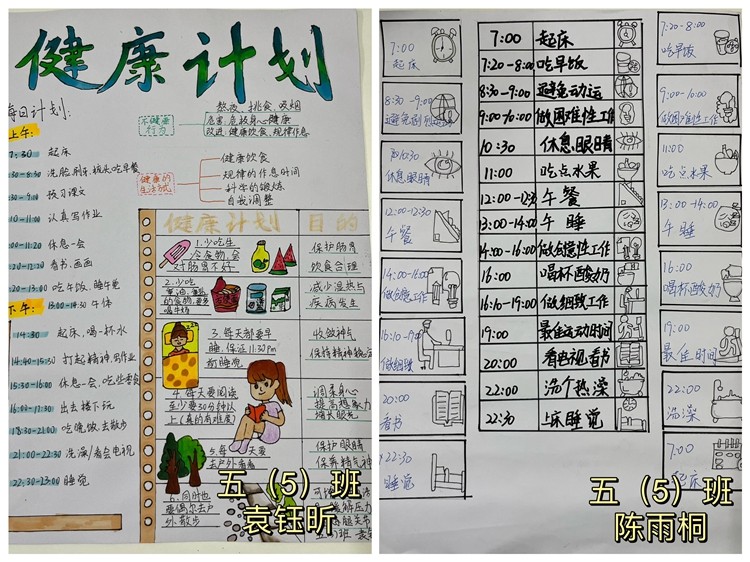 健康计划
每日计划:
上午:
7:30 起床
洗脸,刷牙,梳头,吃早餐
预习课文
认真写作业
休息一会
看书.画画
吃午饭,睡午觉
下午:
14:30 起床,喝一杯水
14:40-15:30 打起精神,写作业
15:30-16:00 休息一会,吃些零食
出去楼下玩
18:30-21:00 吃晚饭,去散步
21:00-22:30 洗澡/看会电视
22:30-23:00 睡觉
不健康行为
熬夜、挑食、吸烟
危害:危放身心健康
改进:健康饮食、规律作息
健康的生活方式
健康饮食
规律的作息时间
科学的锻炼
自我调整
健康计划 目的
1.少吃生冷食物,会对肠胃不好
保护肠胃
饮食合理
2.少吃
减少湿热与
疾病发生
3.每天都要早睡,保证11:30pm前睡觉
收敛神气
4.每天要阅读至少要30分钟以上(真的有难度)
保护眼睛
5.每天要去户外看看
6.同时也要偶尔去户外散步
五(5)班
袁钰昕
7:00
起床
8:30-9:00
休息眼睛
12:00-12:30
午餐
14:00-16:00
做创意性工作
做细致
20:00
看书
22:30
睡觉
7:00 起床
7:20-8:00 吃早饭
8:30-9:00 避免动运
9:00-10:00 做困难性工作
10:30 休息眼睛
11:00 吃点水果
12:00-12:30 午餐
13:00-14:00 午睡
14:00-16:00 做创意性工作
16:00 喝杯酸奶
16:10-19:00 做细致工作
19:00 最佳运动时间
20:00 看电视看书
22:00 洗个热澡
22:30 上床睡觉
7:20-8:00
吃早饭
9:00-10:00
做困难性工作
11:00
吃点水果
13:00-14:00
午睡
16:00
喝杯酸奶
19:00
最佳时间
22:00
洗澡
7:00
起床
五(5)班
陈雨桐